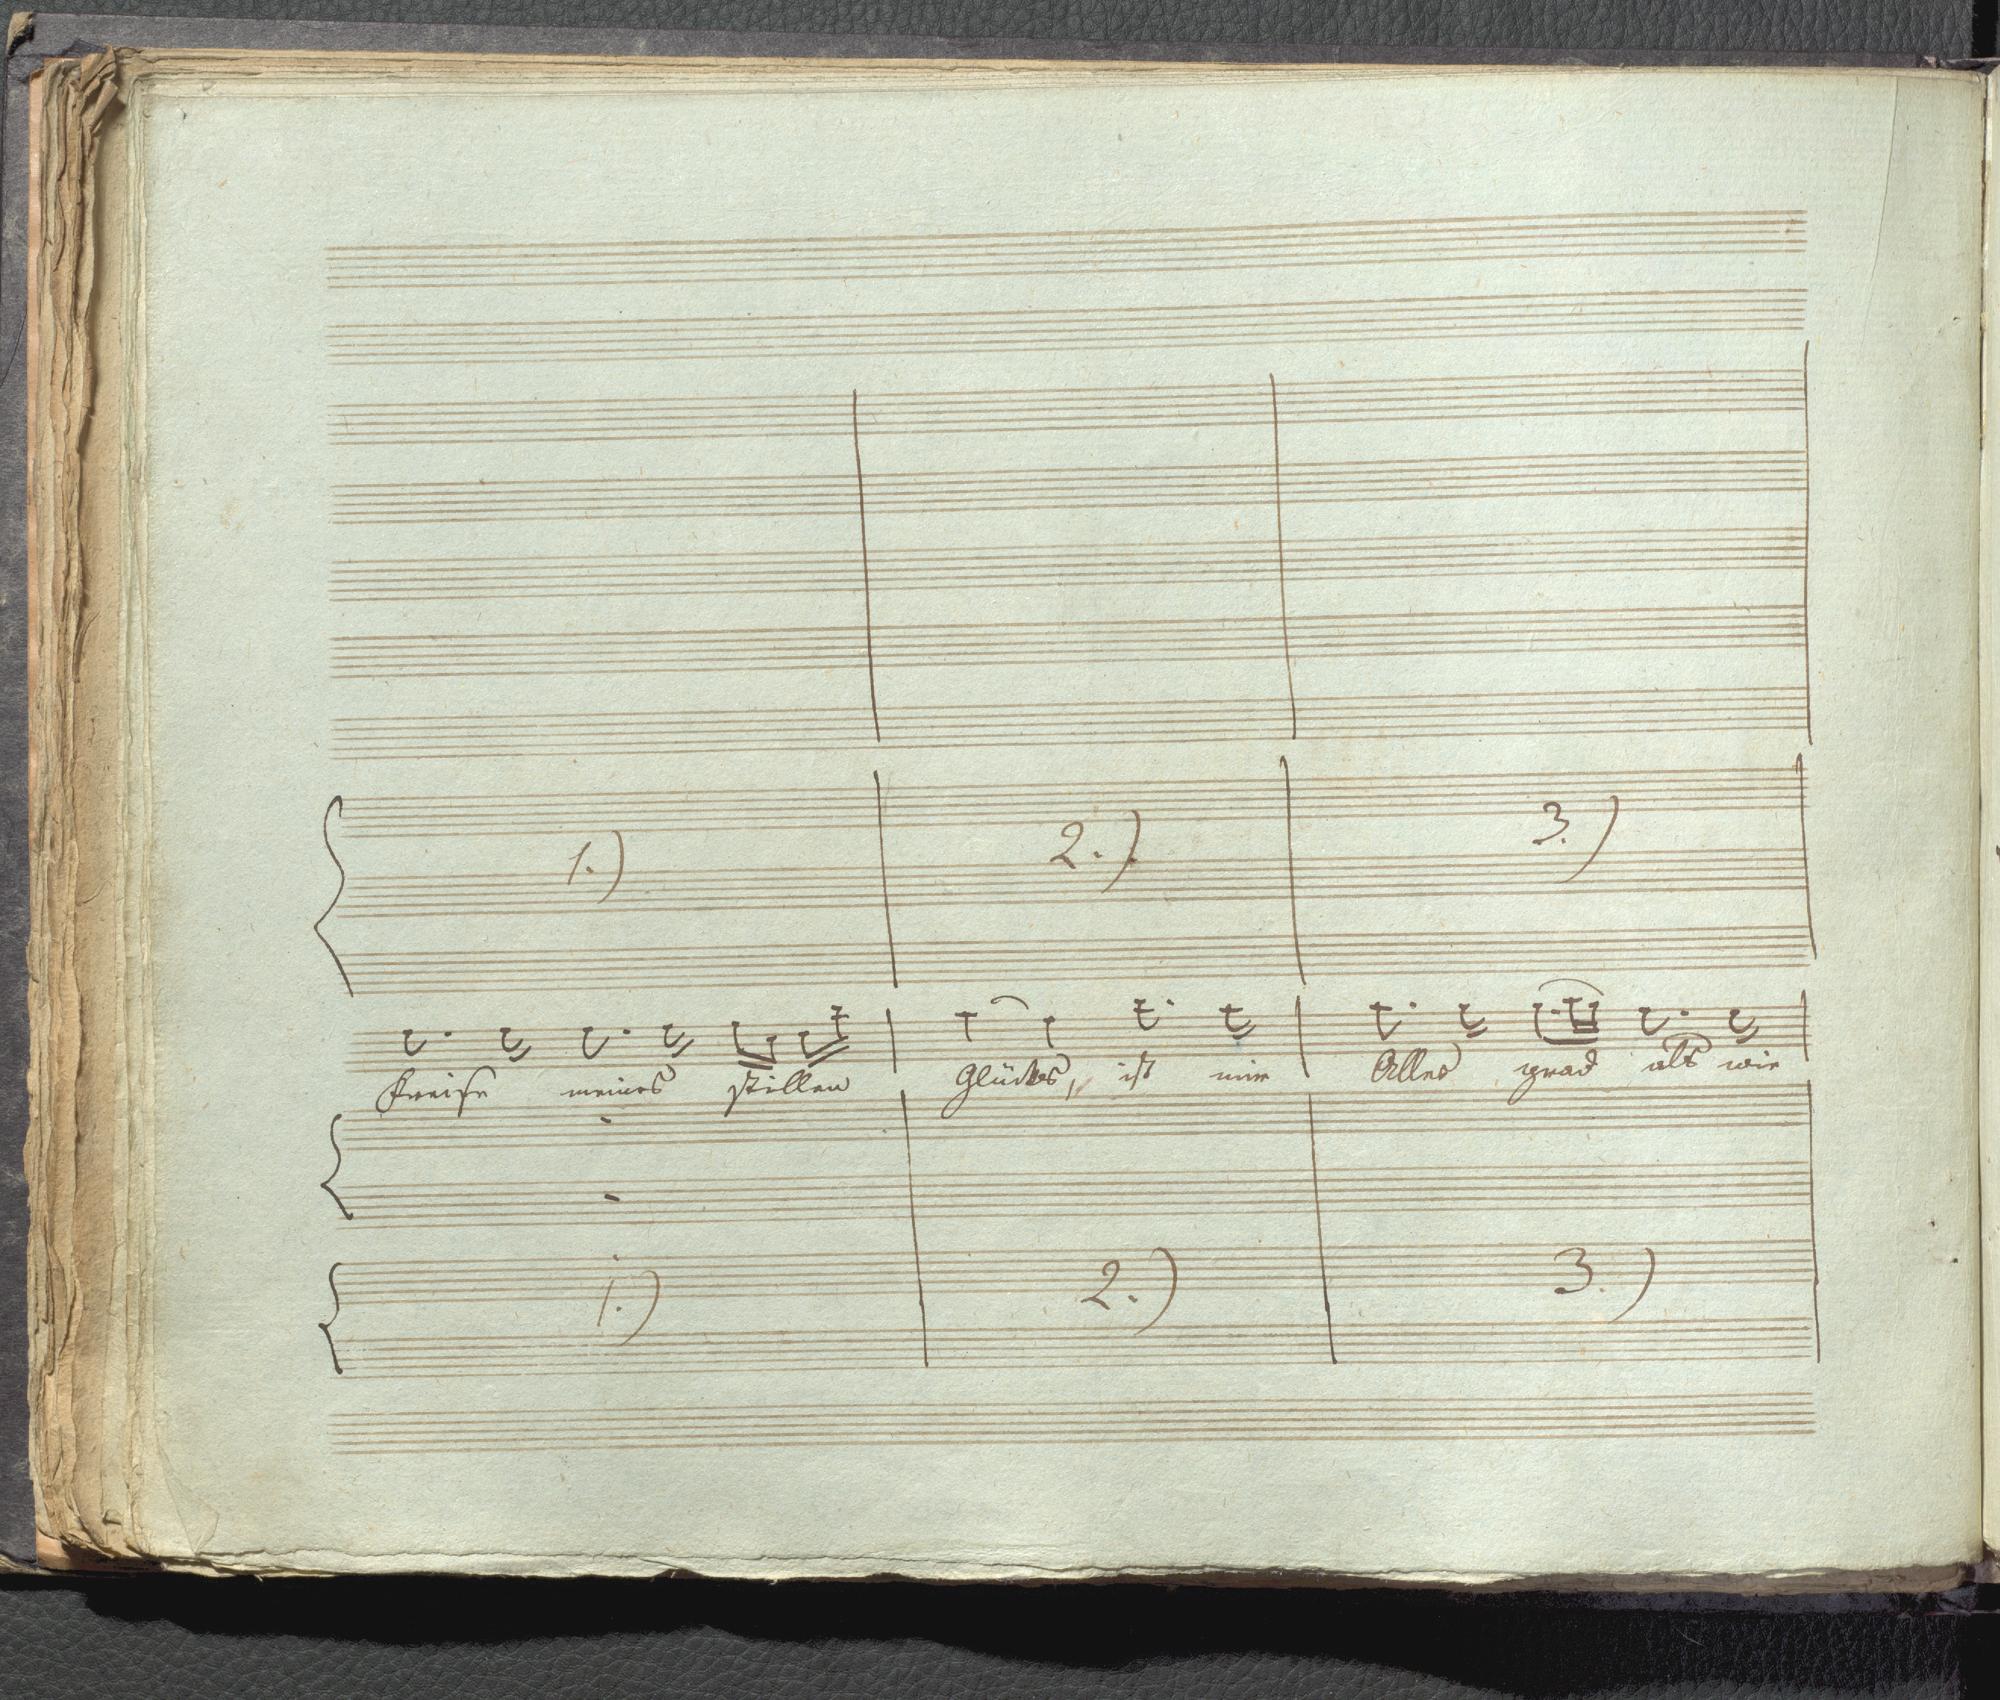 1.) 2.) 3.)
Kreise meines stillen Glückes, ist mir Alles grad als wie
1.) 2.) 3.)